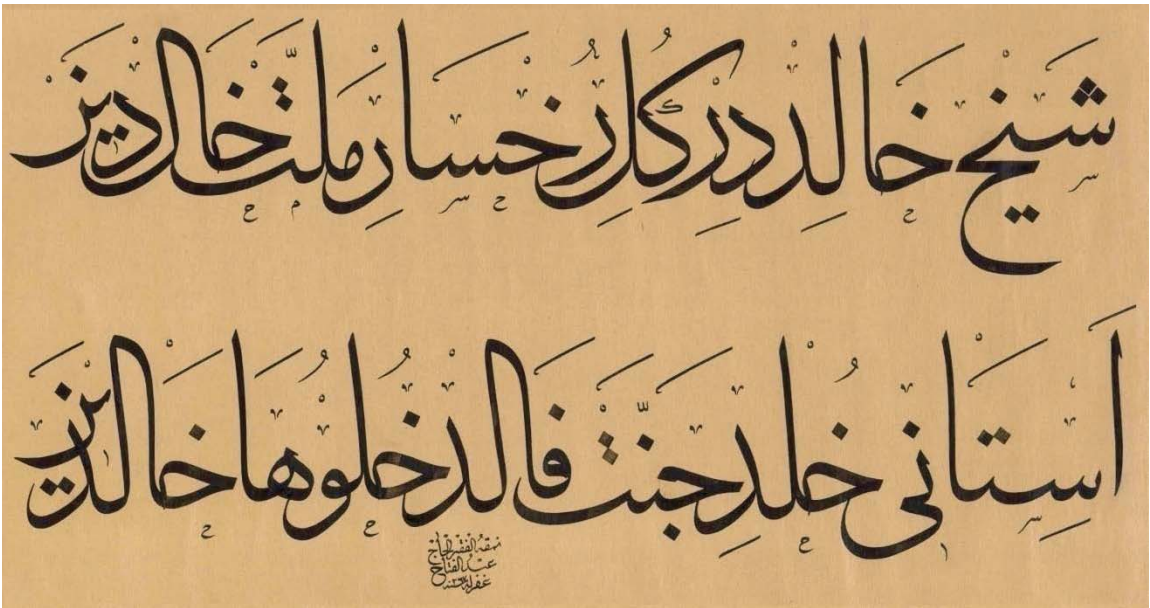 شيخ خالد در گل رخسار ملت خالدين
آستانى خلد جنت فالدخلوها خالدين
نمقه الفقير الحاج
عبد الفتاح
غفر له